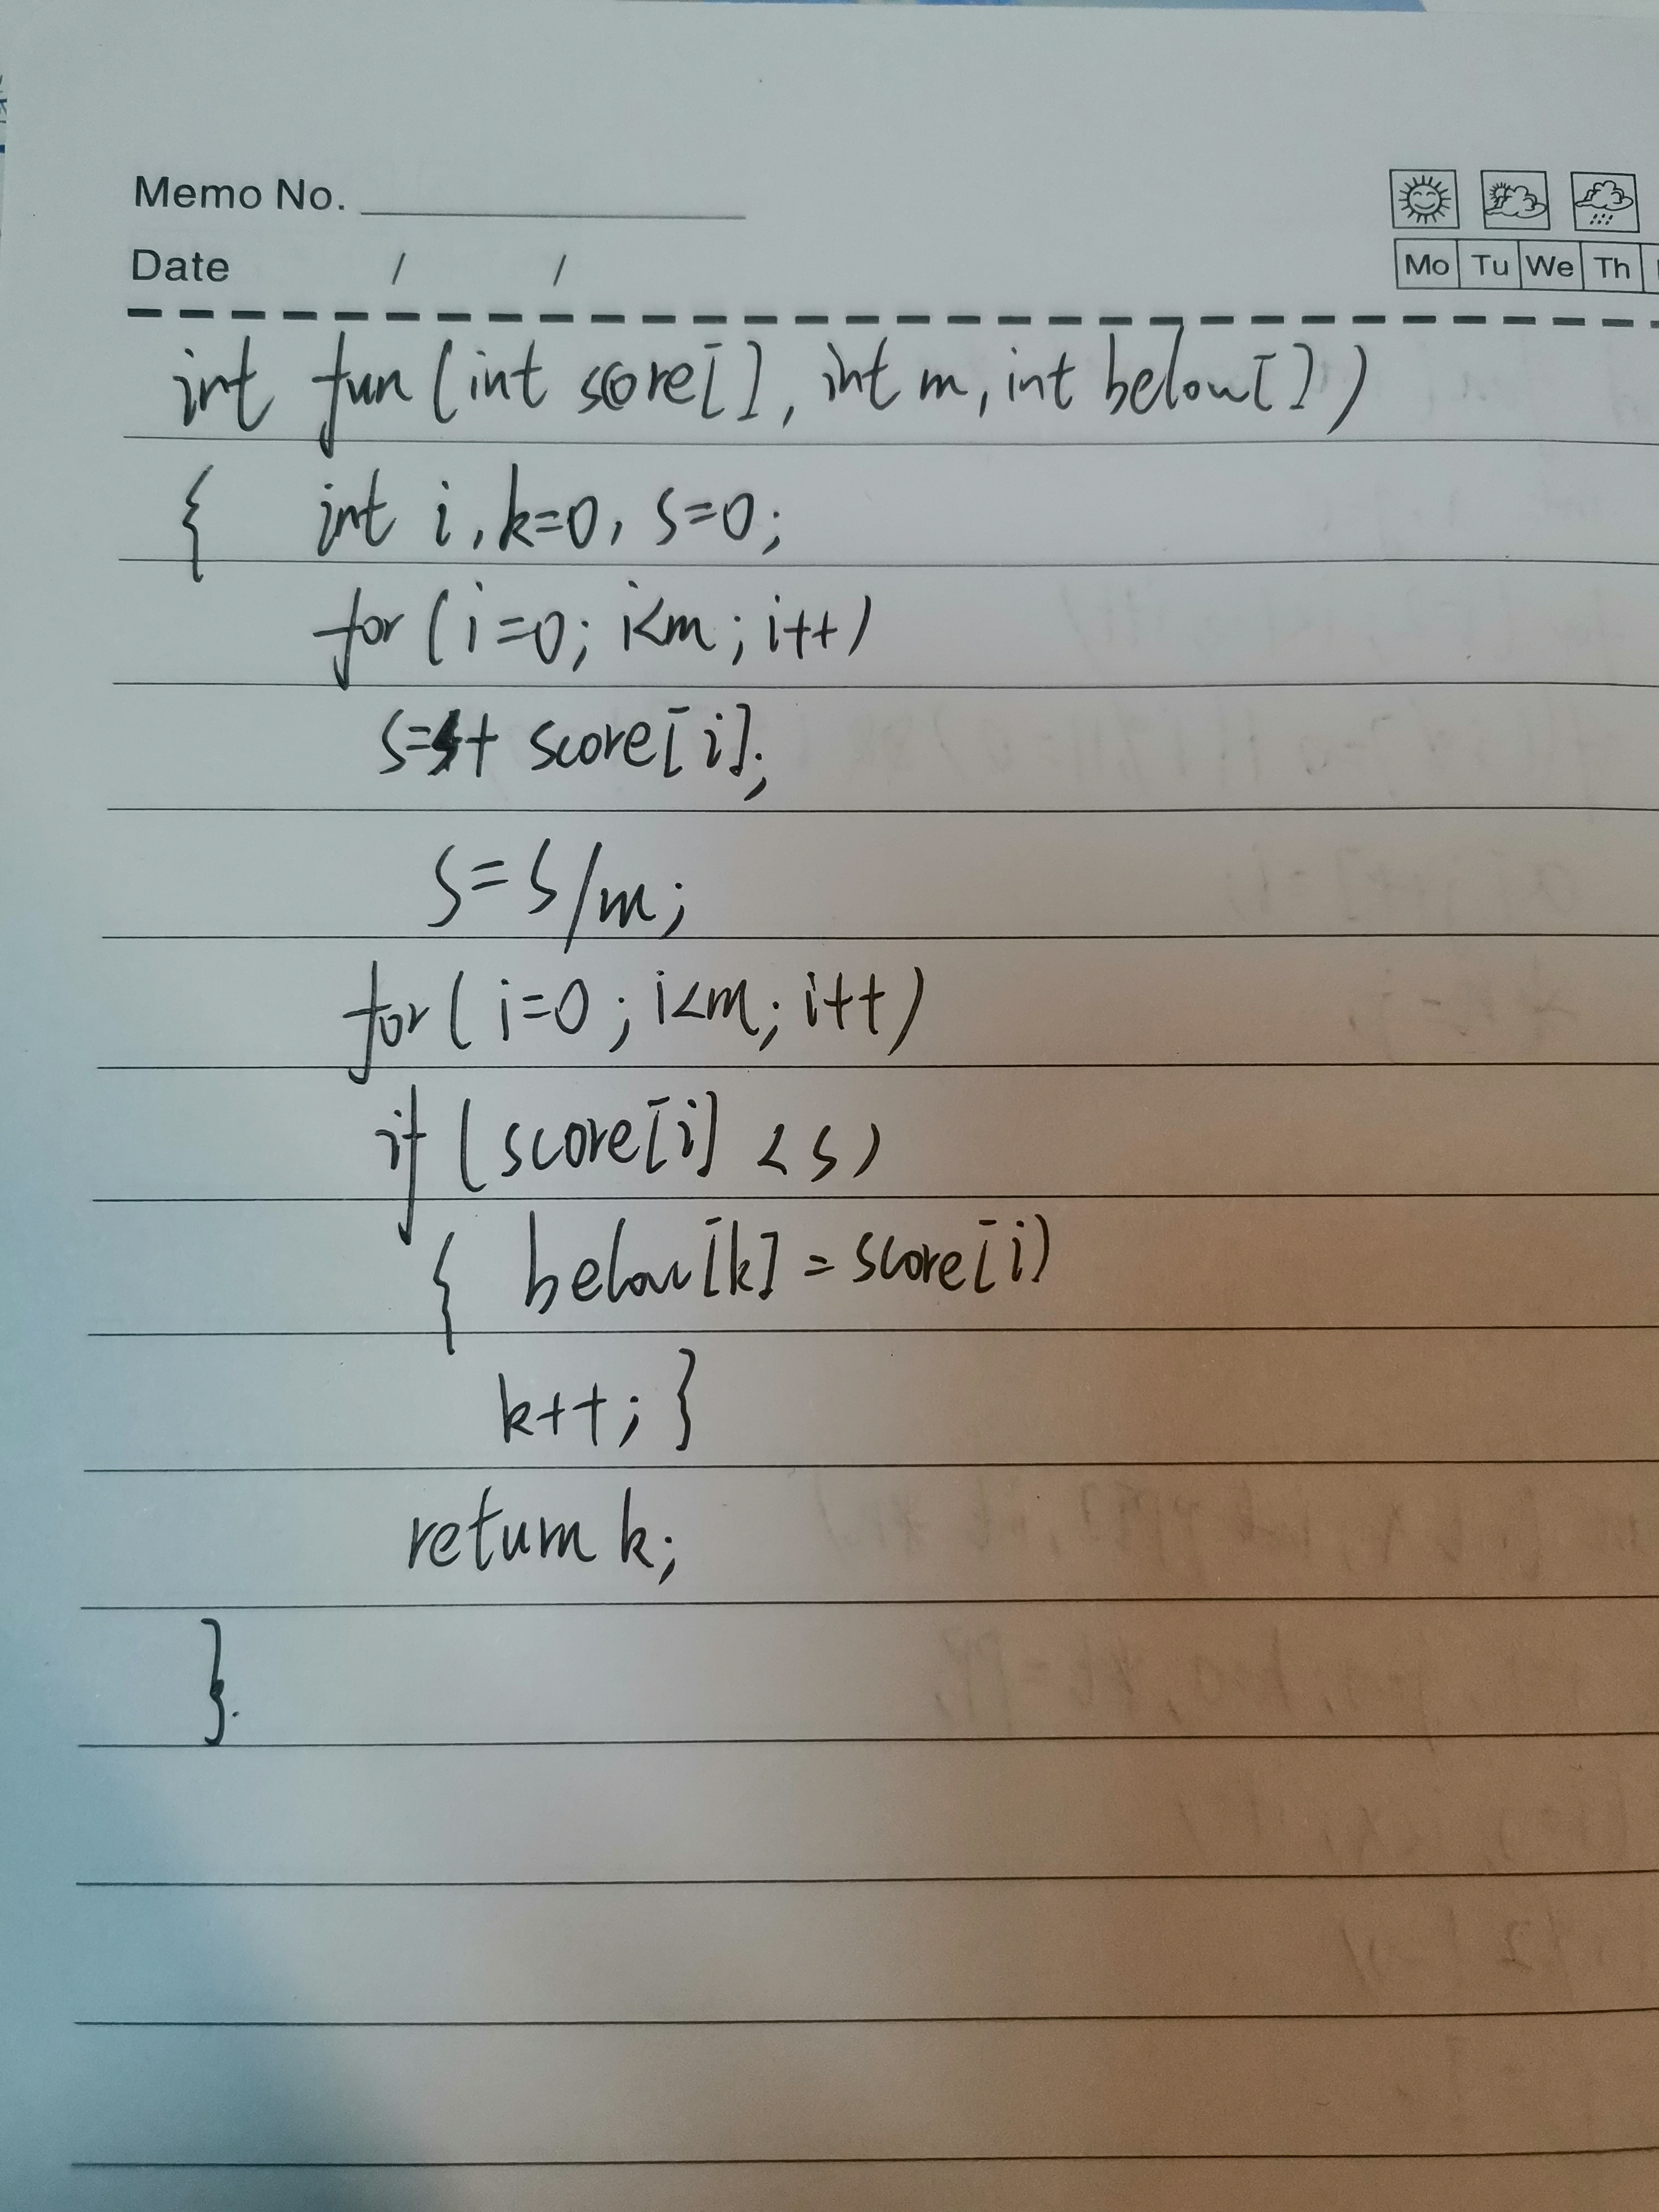 Memo No.
Date / /
Mo Tu We Th
int fun(int score[], int m, int below[])
{ int i, k=0, s=0;
for(i=0; i<m; i++)
s=s+ score[i];
s=s/m;
for(i=0; i<m; i++)
if(score[i] <s)
{ below[k] = score[i)
k++; }
return k;
}.